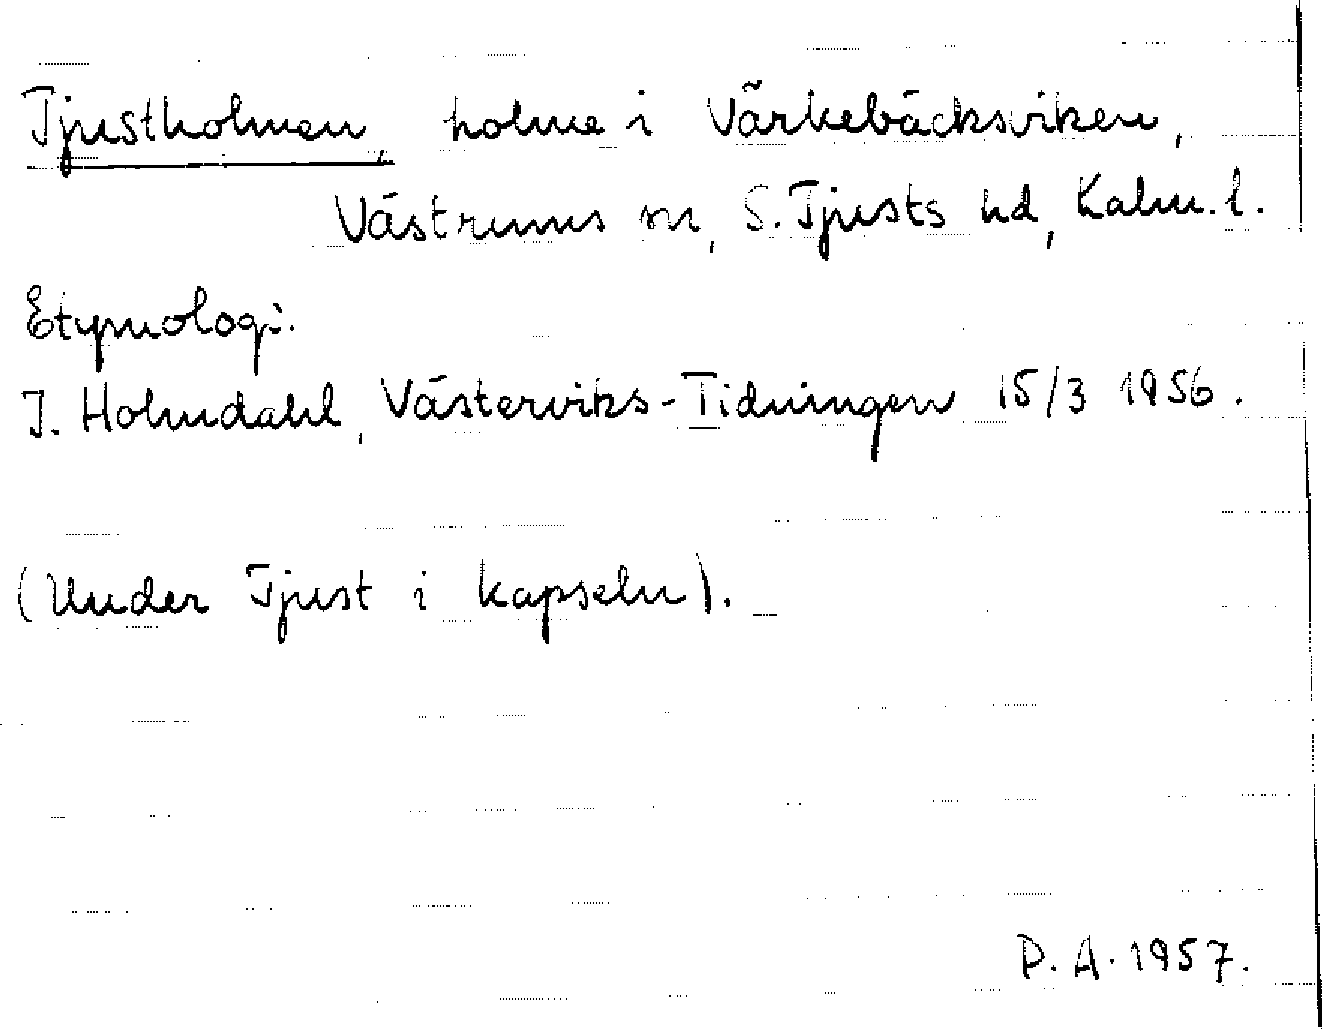 Tjustholmen, holme i Värkebäcksviken,
Västrums sn, S. Tjusts hd, Kalm. l.
Etymologi.
J. Holmdahl, Västerviks-Tidningen 15/3 1956.
(Under Tjust i kapseln).
P. A. 1957.